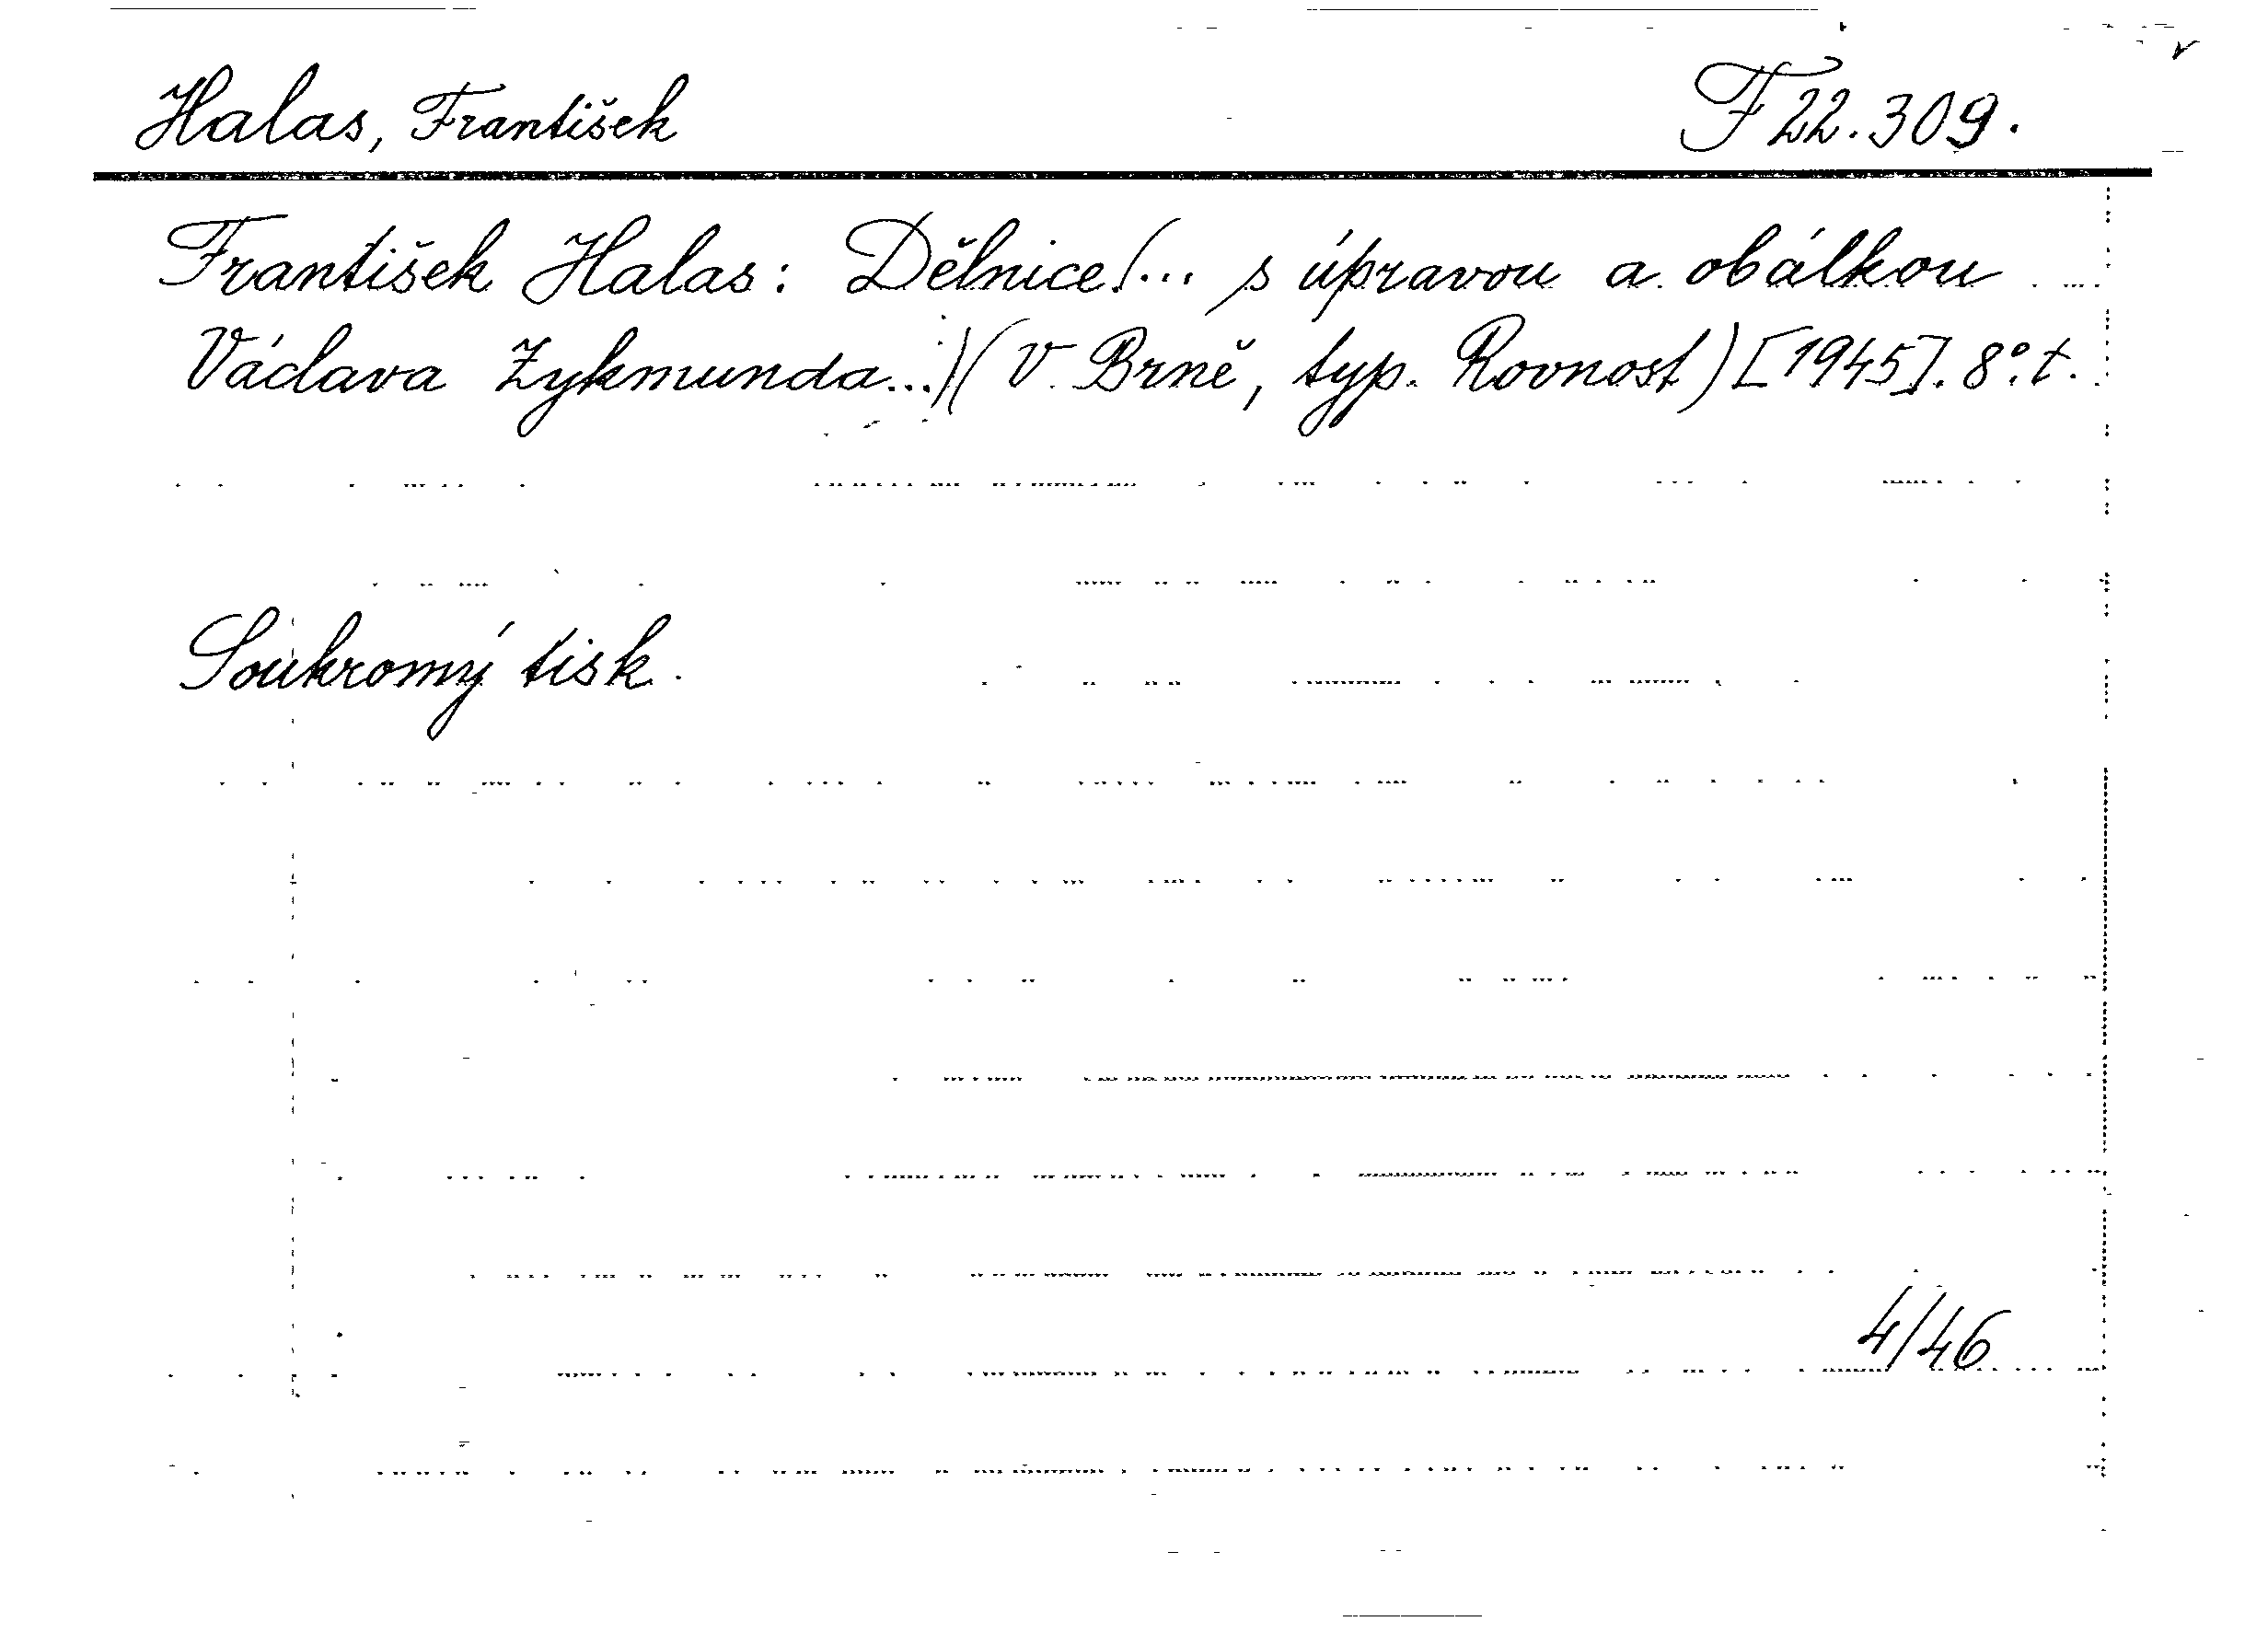 Halas, František F 22.309.
František Halas: Dělnice(... s úpravou a obálkou
Václava Zykmunda...)(V Brně, typ. Rovnost)[1945]. 8°. t.
Soukromý tisk.
4/46